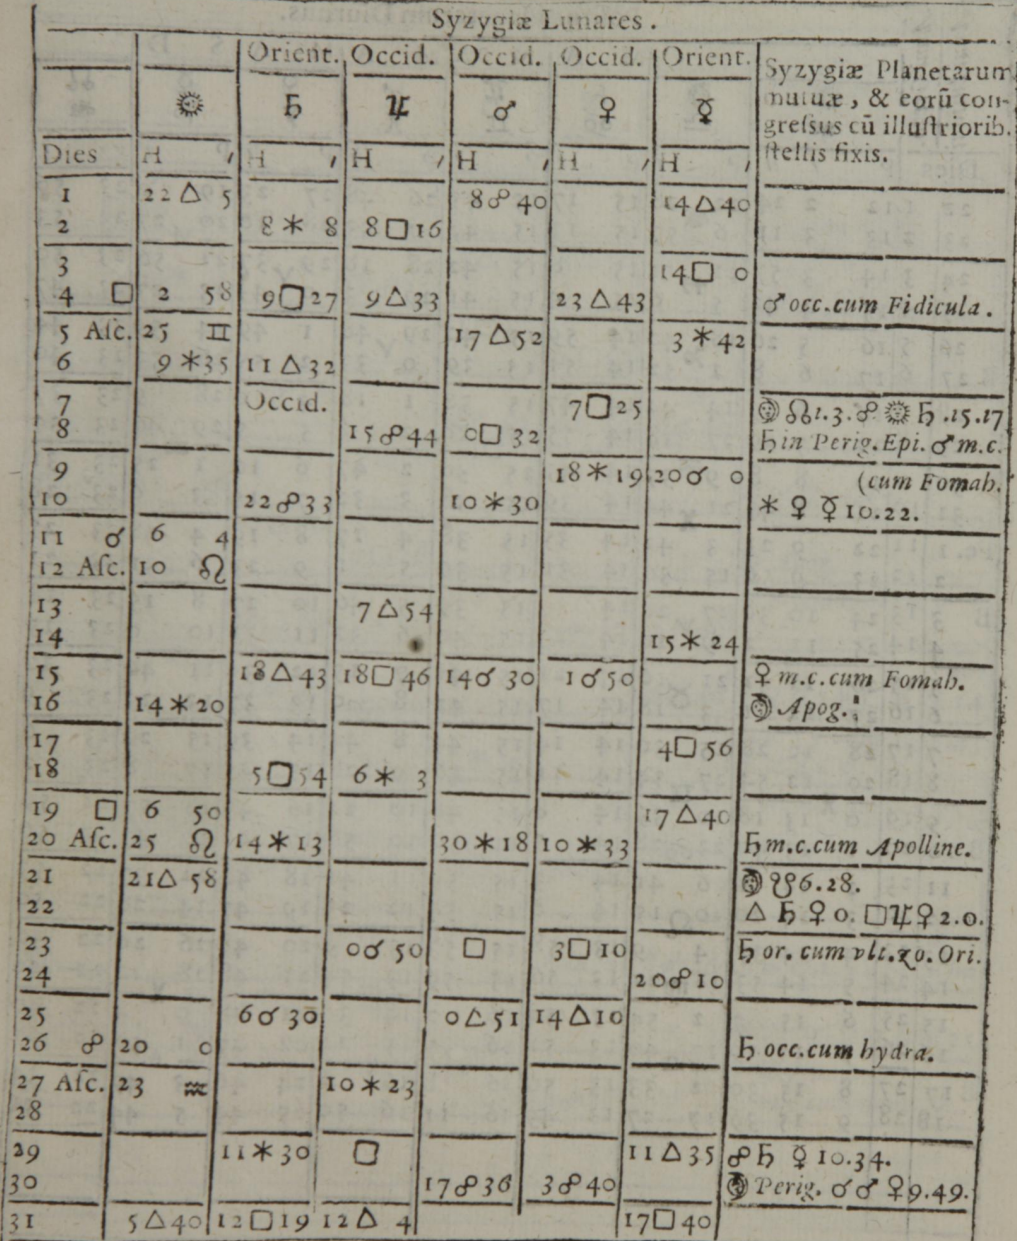 Syzygiæ Lunares.
Orient. Occid. Occid. Occid. Orient. Syzygiæ Planetarum
☉ ♄ ♃ ♂ ♀ ☿ mutuæ, & eorũ con-
greſsus cũ illuſtriorib.
Dies H ′ H ′ H ′ H ′ H ′ H ′ ſtellis fixis.
1 22 △ 5 8 ☍ 40 14 △ 40
2 8 ✶ 8 8 □ 16
3 14 □ 0
4 □ 2 58 9 □ 27 9 △ 33 23 △ 43 ♂ occ.cum Fidicula.
5 Aſc. 25 ♊ 17 △ 52 3 ✶ 42
6 9 ✶ 35 11 △ 32
7 Occid. 7 □ 25 ☽ ☊ 1.3. ☍ ☉ ♄ .15.17
8 15 ☍ 44 0 □ 32 ♄ in Perig. Epi. ♂ m.c.
9 18 ✶ 19 20 ☌ 0 (cum Fomah.
10 22 ☍ 33 10 ✶ 30 ✶ ♀ ☿ 10.22.
11 ☌ 6 4
12 Aſc. 10 ♌
13 7 △ 54
14 15 ✶ 24
15 18 △ 43 18 □ 46 14 ☌ 30 1 ☌ 50 ♀ m.c.cum Fomah.
16 14 ✶ 20 ☽ Apog.
17 4 □ 56
18 5 □ 54 6 ✶ 3
19 □ 6 50 17 △ 40
20 Aſc. 25 ♌ 14 ✶ 13 30 ✶ 18 10 ✶ 33 ♄ m.c.cum Apolline.
21 21 △ 58 ☽ ☋ 6.28.
22 △ ♄ ♀ 0. □ ♃ ♀ 2.0.
23 0 ☌ 50 □ 3 □ 10 ♄ or. cum vlt. zo. Ori.
24 20 ☍ 10
25 6 ☌ 30 0 △ 51 14 △ 10
26 ☍ 20 0 ♄ occ.cum hydra.
27 Aſc. 23 ♒ 10 ✶ 23
28
29 11 ✶ 30 □ 11 △ 35 ☍ ♄ ☿ 10.34.
30 17 ☍ 36 3 ☍ 40 ☽ Perig. ☌ ♂ ♀ 9.49.
31 5 △ 40 12 □ 19 12 △ 4 17 □ 40